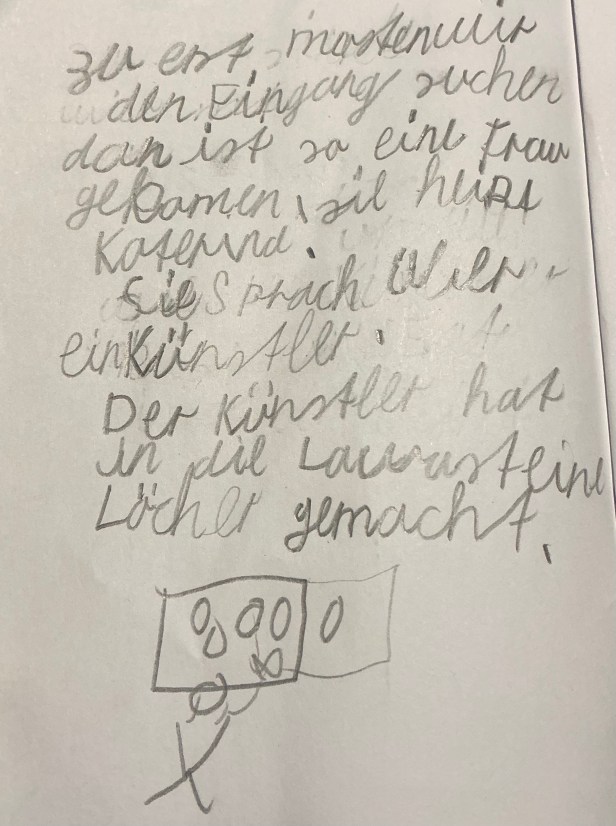 zu erst mosten wir
den Eingang suchen
dan ist so eine Frau
gekomen, sie heist
Katerina.
Sie Sprach über
ein Künstler.
Der Künstler hat
in die Lawasteine
Löcher gemacht.